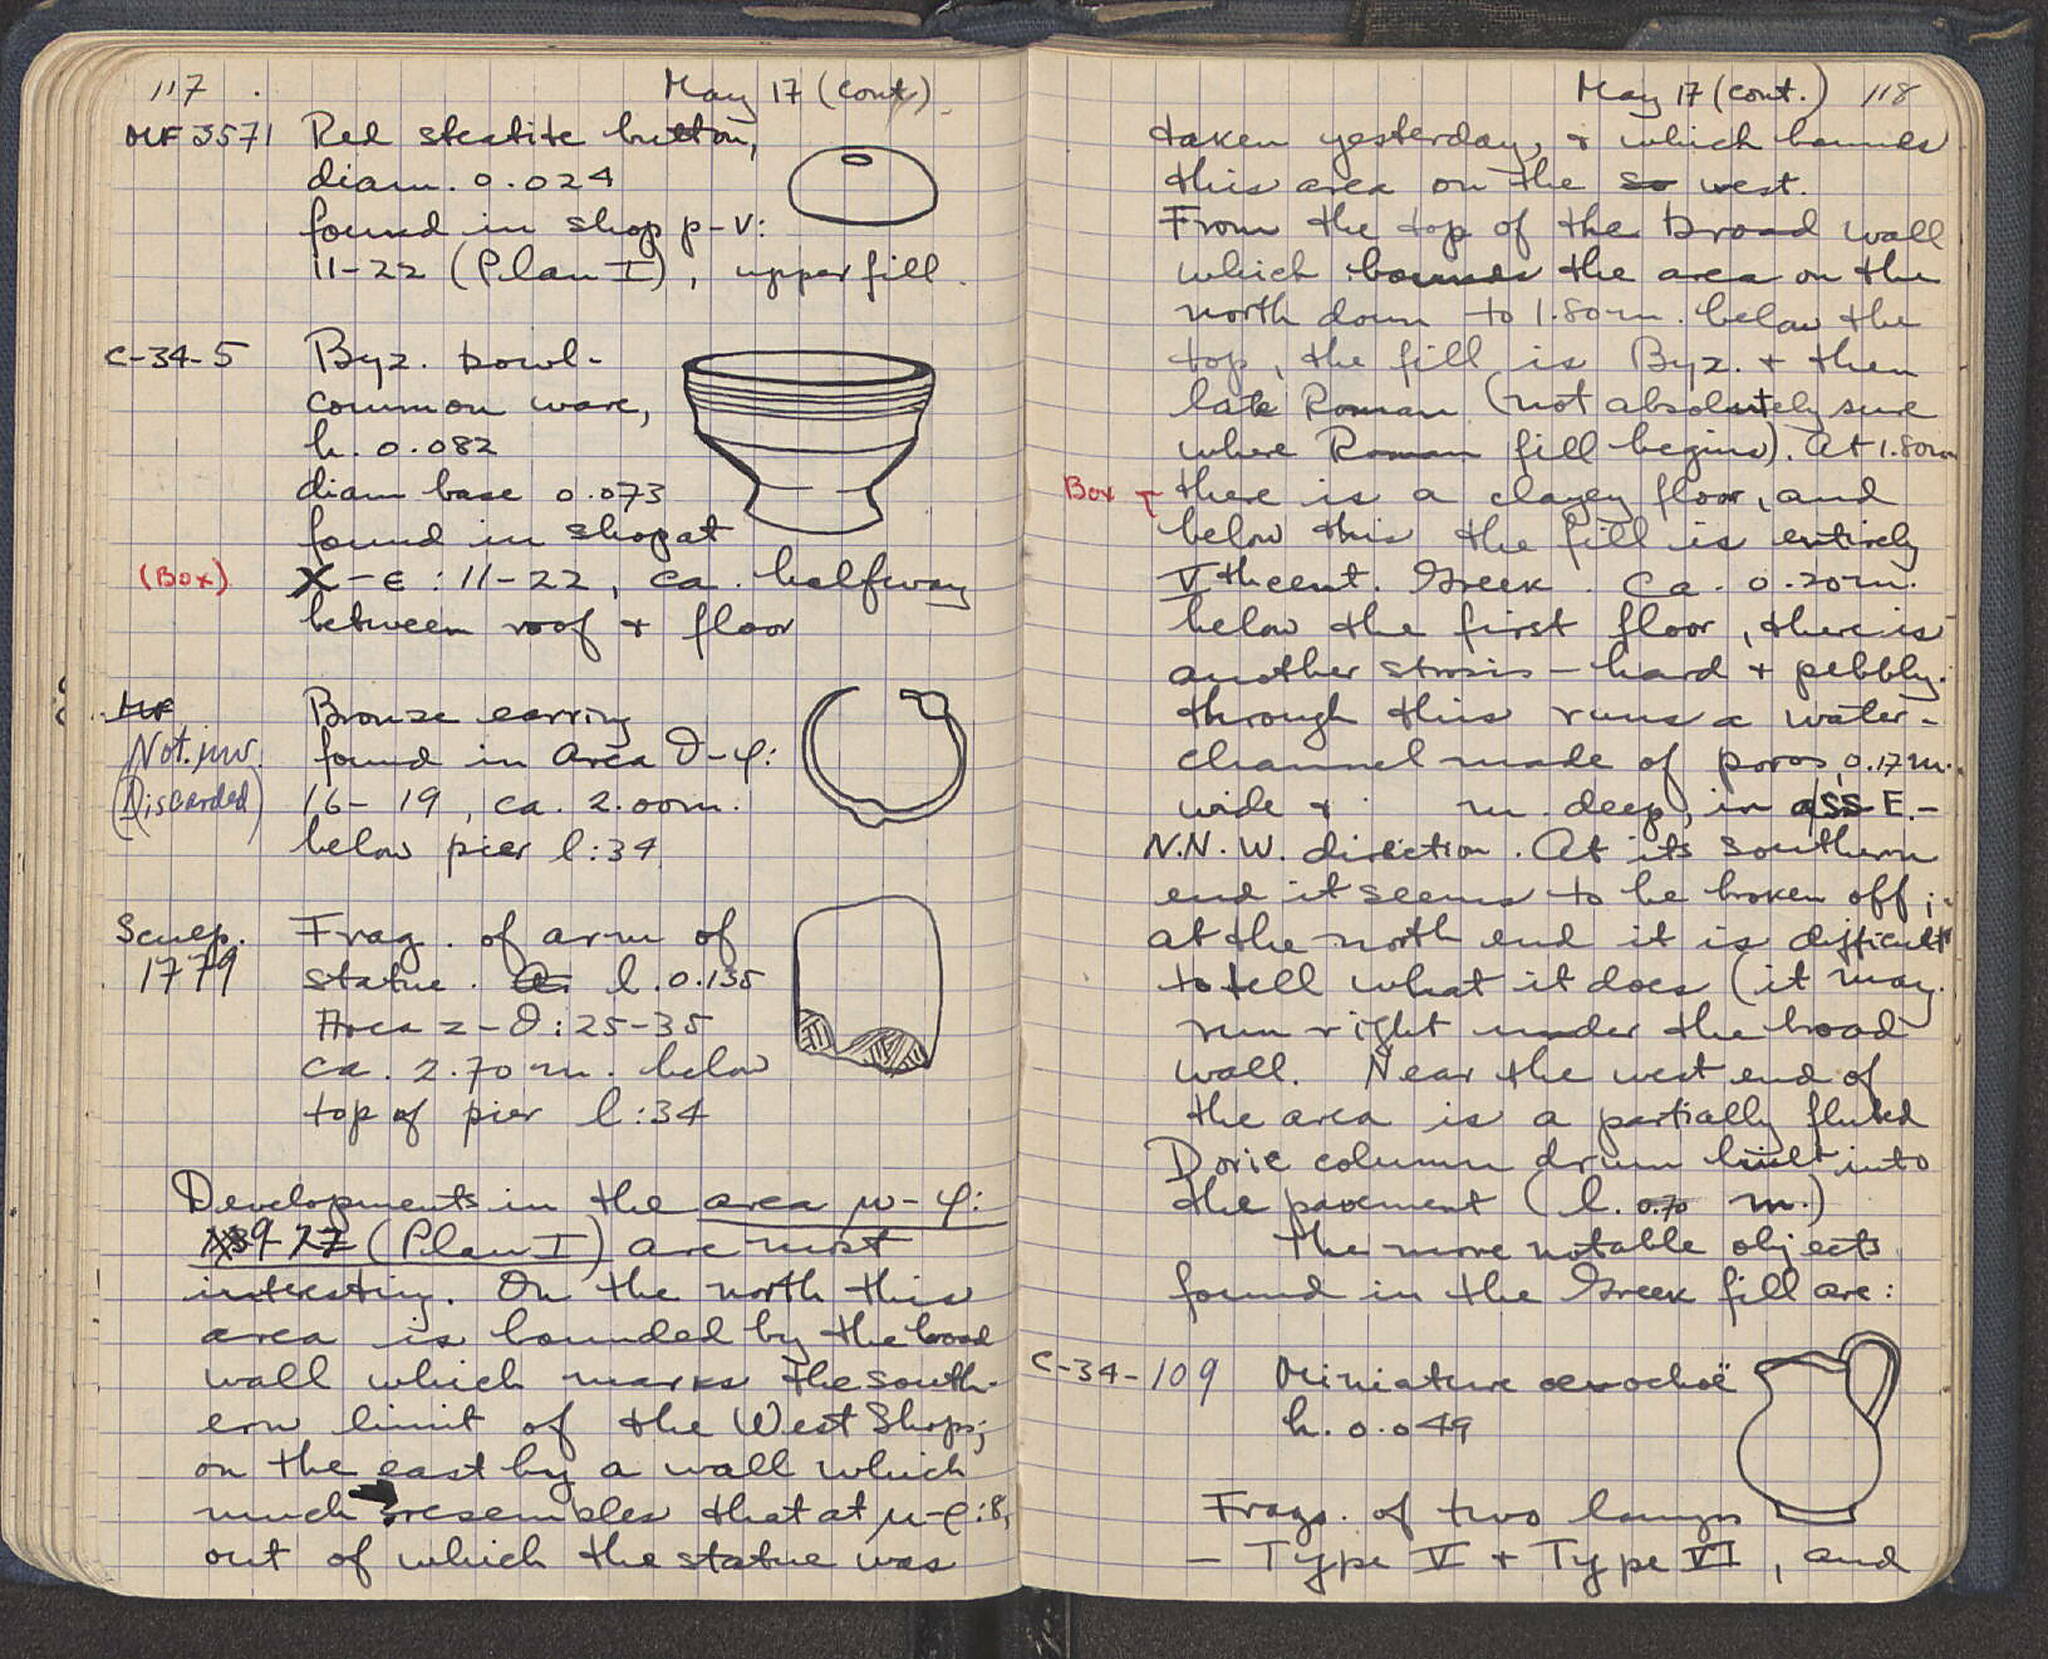 117 May 17 (cont.)
MF 3571 Red steatite button,
diam. 0.024
found in shop p-v:
11-22 (Plan I), upper fill.
C-34-5 Byz. bowl-
common ware,
h. 0.082
diam base 0.073
found in shop at
(Box) X-E: 11-22, ca. halfway
between roof + floor
MF Bronze earring
Not. inv. found in Area ϑ-φ:
(Discarded) 16-19, ca. 2.00m.
below pier l:34
Sculp. Frag. of arm of
1779 statue. l. 0.135
Area z-ϑ: 25-35
ca. 2.70 m. below
top of pier l:34
Developments in the area μ-φ:
9-27 (Plan I) are most
interesting. On the north this
area is bounded by the broad
wall which marks the south-
ern limit of the West Shops;
on the east by a wall which
much resembles that at μ-ρ:8,
out of which the statue was
May 17 (cont.) 118
taken yesterday, + which bounds
this area on the so west.
From the top of the broad wall
which bounds the area on the
north down to 1.80m. below the
top, the fill is Byz. + then
late Roman (not absolutely sure
where Roman fill begins). At 1.80m
Box there is a clayey floor, and
below this the fill is entirely
V th cent. Greek. Ca. 0.20m.
below the first floor, there is
another strosis - hard + pebbly.
through this runs a water-
channel made of poros, 0.17m.
wide + m. deep, in a SSE.-
N.N.W. direction. At its southern
end it seems to be broken off;
at the north end it is difficult
to tell what it does (it may
run right under the broad
wall. Near the west end of
the area is a partially fluted
Doric column drum built into
the pavement (l. 0.70 m.)
The more notable objects
found in the Greek fill are:
C-34-109 Miniature oenochoë
h. 0.049
Frags. of two lamps
- Type V + Type VI, and